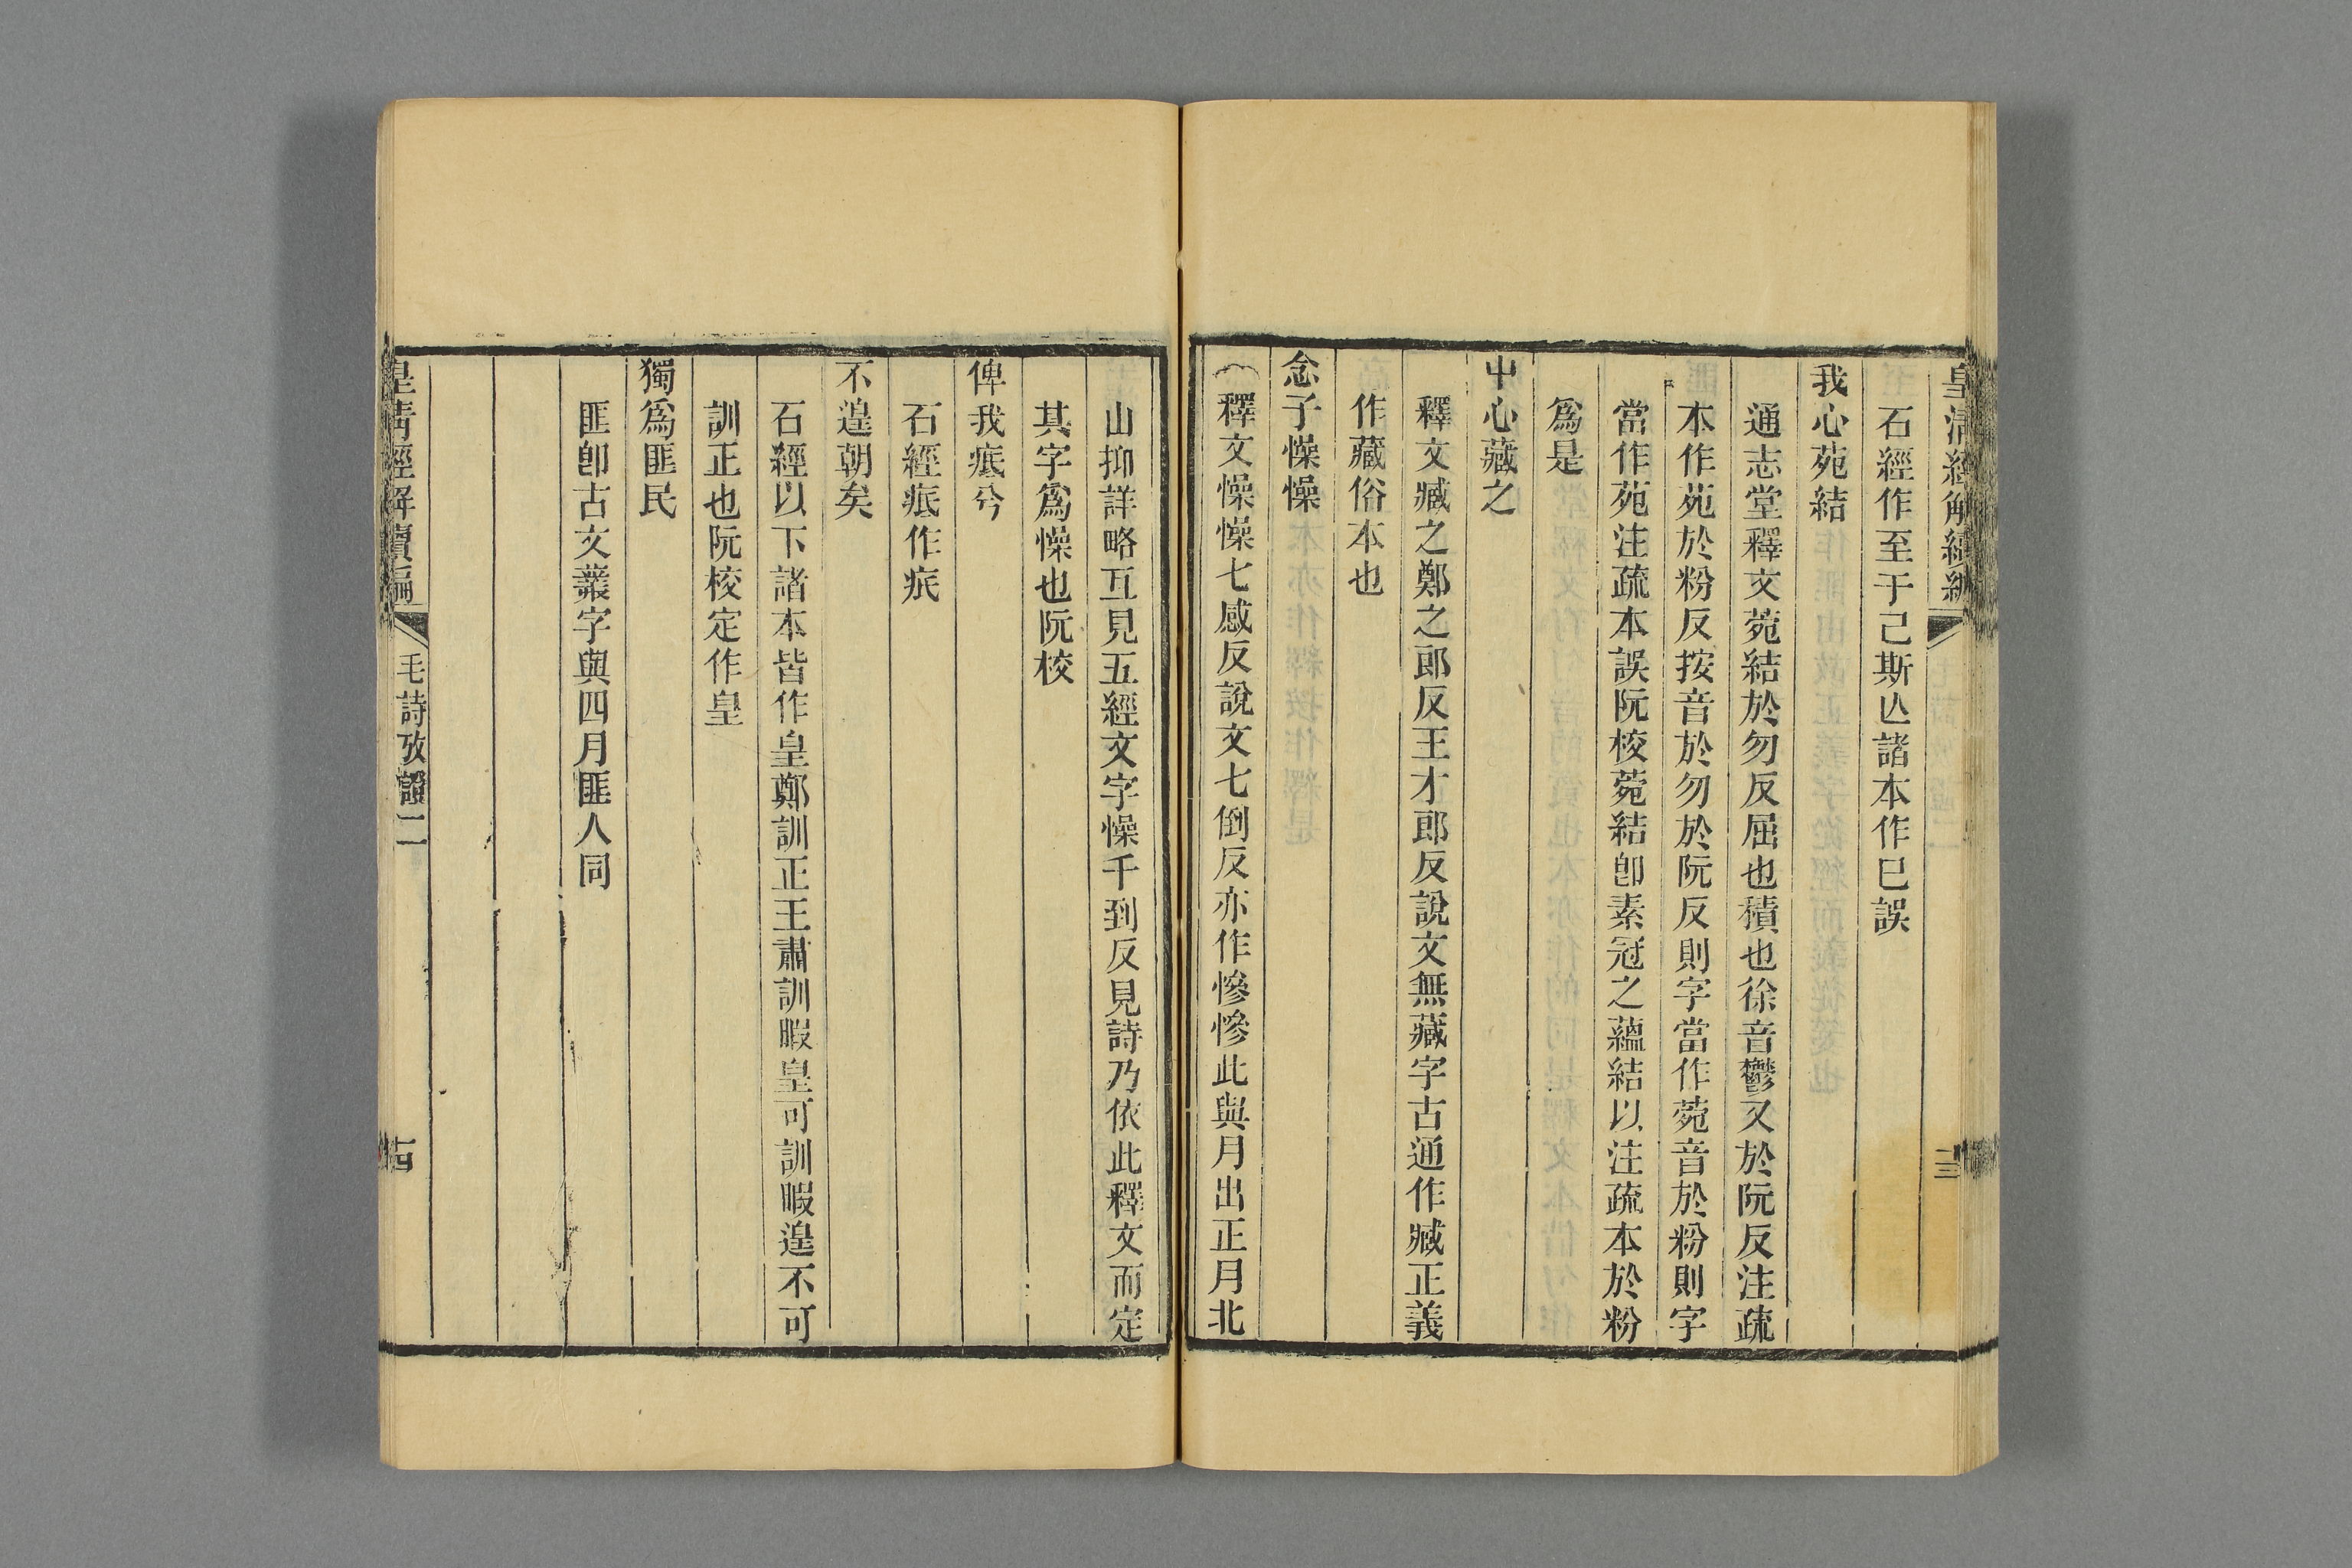 皇清經解續編
三
石經作至于己斯亾諸本作巳誤
我心苑結
通志堂釋文菀結於勿反屈也積也徐音鬱又於阮反注疏
本作苑於粉反按音於勿於阮反則字當作菀音於粉則字
當作苑注疏本誤阮校菀結卽素冠之蘊結以注疏本於粉
爲是
中心藏之
釋文臧之鄭之郎反王才郎反說文無藏字古通作臧正義
作藏俗本也
念子懆懆
釋文懆懆七感反說文七倒反亦作慘慘此與月出正月北
山抑詳略互見五經文字懆千到反見詩乃依此釋文而定
其字爲懆也阮校
俾我疷兮
石經疷作疧
不遑朝矣
石經以下諸本皆作皇鄭訓正王肅訓暇皇可訓暇遑不可
訓正也阮校定作皇
獨爲匪民
匪卽古文䕺字與四月匪人同
皇清經解續編
毛詩攷證二
古